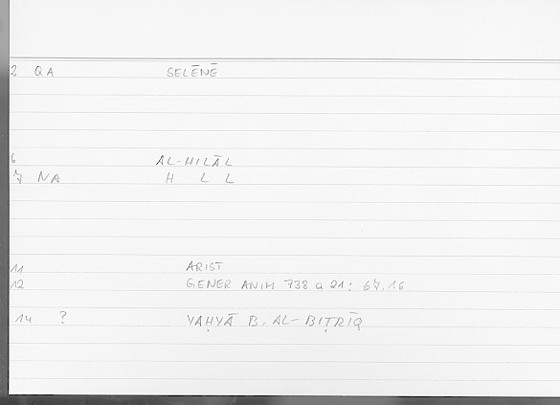 2 QA SELĒNĒ
6 AL-HILĀL
7 NA H L L
11 ARIST
12 GENER ANIM 738 a 21: 67.16
14 ? YAḤYĀ B. AL-BIṬRĪQ